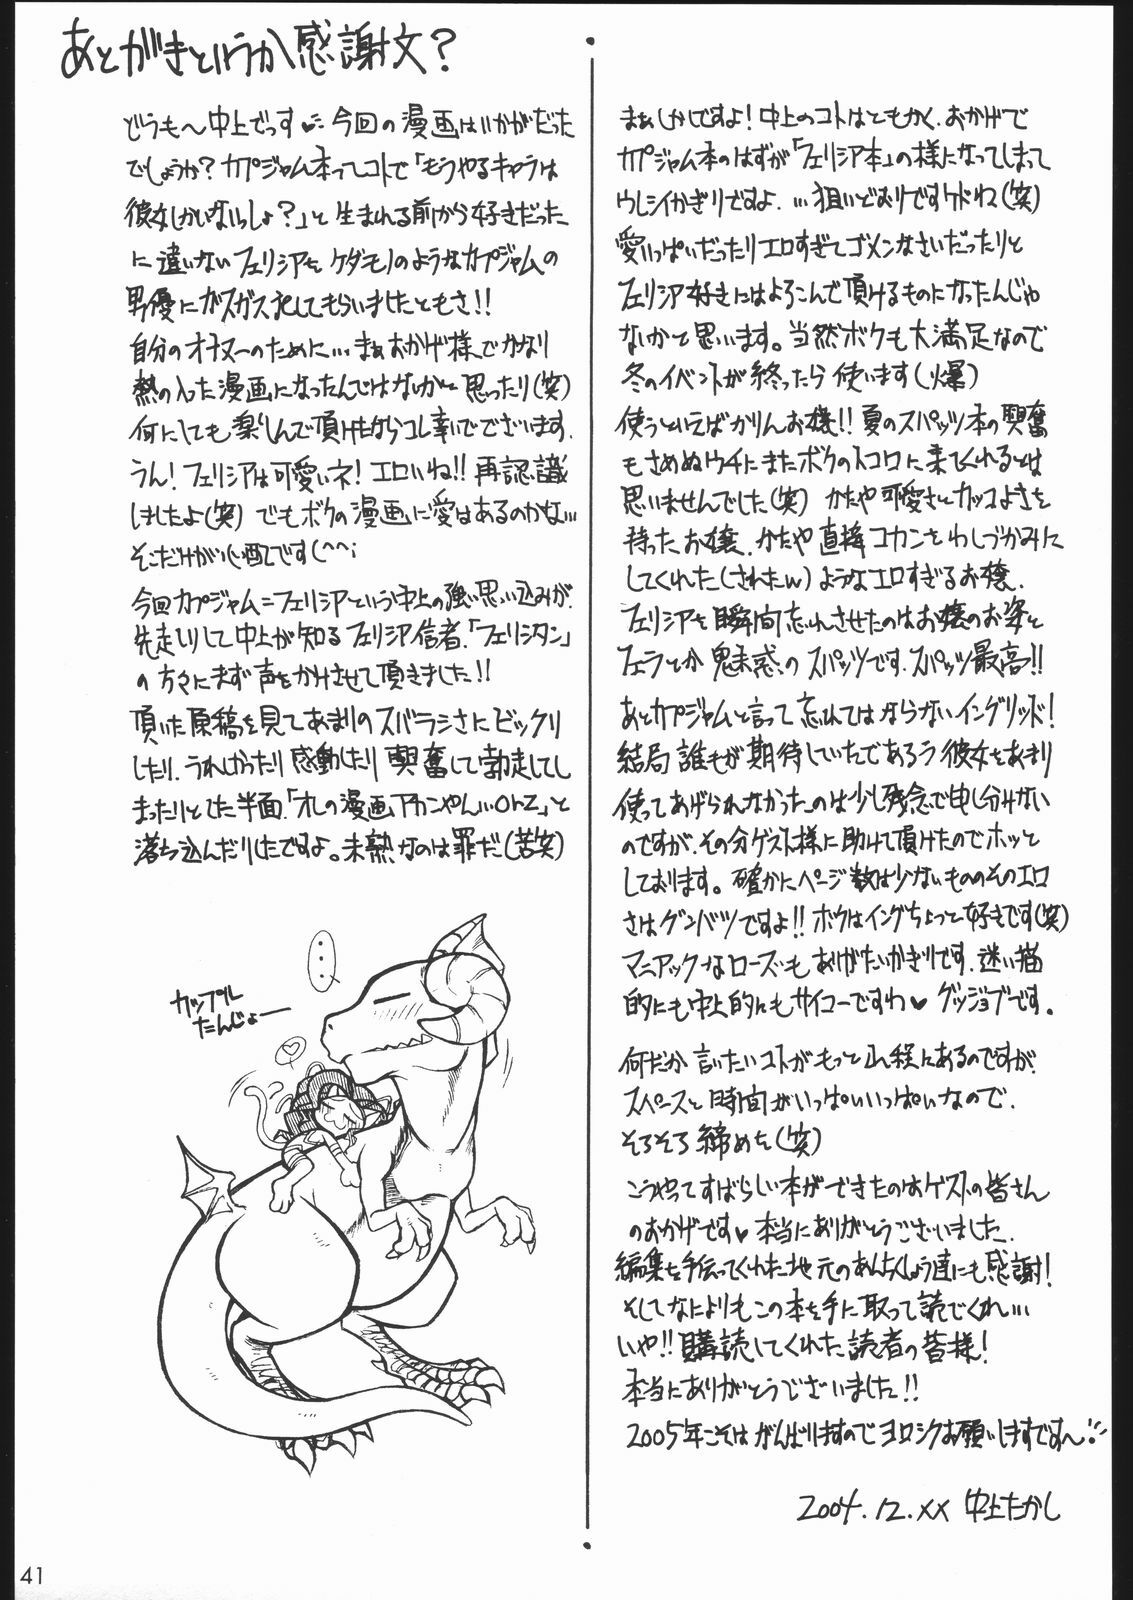 あとがきというか感謝文?
どうも～中上でっす♥ 今回の漫画はいかがだった
でしょうか?カプジャム本ってコトで「もうやるキャラは
彼女しかいないっしょ?」と生まれる前から好きだった
に違いないフェリシアをケダモノのようなカプジャムの
男優にガスガス犯してもらいましたともさ!!
自分のオナヌーのために…まぁおかげ様でかなり
熱の入った漫画になったんではないかと思ったり(笑)
何にしても楽しんで頂けたならコレ幸いでございます.
うん!フェリシアは可愛いネ!エロいね!!再認識
しましたよ(笑)でもボクの漫画に愛はあるのかな…
そこだけが心配です(^^;
今回カプジャム=フェリシアという中上の強い思い込みが
先走りして中上が知るフェリシア信者.「フェリシタン」
の方々にまず声をかけさせて頂きました!!
頂いた原稿を見てあまりのスバラシさにビックリ
したり.うれしかったり感動したり興奮して勃走してし
まったりとした半面「オレの漫画アカンやん…orz」と
落ち込んだりしたですよ。未熟なのは罪だ(苦笑)
…
カップル
たんじょー
まぁしかしですよ!中上のコトはともかく、おかげで
カプジャム本のはずが「フェリシア本」の様になってしまって
ウレシイかぎりですよ.…狙いどおりですケドね(笑)
愛いっぱいだったりエロすぎてゴメンなさいだったりと
フェリシア好きにはよろこんで頂けるものになったんじゃ
ないかと思います。当然ボクも大満足なので
冬のイベントが終ったら使います(爆)
使うといえばかりんお嬢!!夏のスパッツ本の興奮
もさめぬウチにまたボクのトコロに来てくれるとは
思いませんでした(笑)かたや可愛さとカッコよさを
持ったお嬢.かたや直接コカンをわしづかみに
してくれた(されたw)ようなエロすぎるお嬢.
フェリシアを瞬間忘れさせたのはお嬢のお姿と
フェラとか魅惑のスパッツです.スパッツ最高!!
あとカプジャムと言って忘れてはならないイングリッド!
結局誰もが期待していたであろう彼女をあまり
使ってあげられなかったのは少し残念で申し分けない
のですが.その分ゲスト様に助けて頂けたのでホッと
しております。確かにページ数は少ないもののそのエロ
さはグンバツですよ!!ボクはイングちょっと好きです(笑)
マニアックなローズもありがたいかぎりです.迷い猫
的にも中上的にもサイコーですわ♥グッジョブです。
何だか言いたいコトがもっと山程にあるのですが
スペースと時間がいっぱいいっぱいなので.
そろそろ締めを(笑)
こうやってすばらしい本ができたのはゲストの皆さん
のおかげです♥本当にありがとうございました.
編集を手伝ってくれた地元のあんちくしょう達にも感謝!
そしてなによりもこの本を手に取って読でくれ…
いや!!購読してくれた読者の皆様!
本当にありがとうございました!!
2005年こそはがんばりますのでヨロシクお願いしますですー!!
2004.12.xx 中上たかし
41